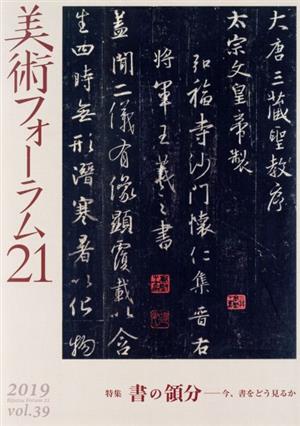 美術フォーラム21
大唐三藏聖教序
太宗文皇帝製
弘福寺沙門懷仁集晉右
將軍王羲之書
蓋聞二儀有像顯覆載以含
生四時無形潛寒暑以化物
2019
Bijutsu Forum 21
vol.39
特集 書の領分——今、書をどう見るか